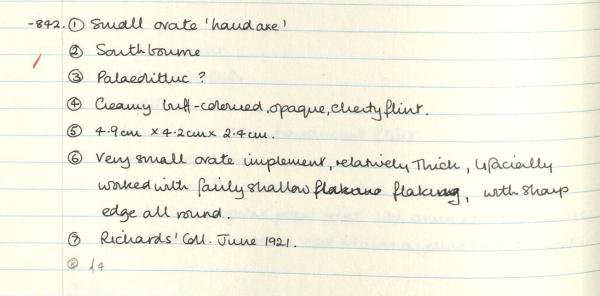 -842. ① Small ovate 'handaxe'
② Southbourne
③ Palaeolithic ?
④ Creamy buff-coloured, opaque, cherty flint.
⑤ 4.9cm × 4.2cm × 2.4cm.
⑥ Very small ovate implement, relatively thick, bifacially
worked with fairly shallow flaking, with sharp
edge all round.
⑦ Richards' Coll. June 1921.
⑧